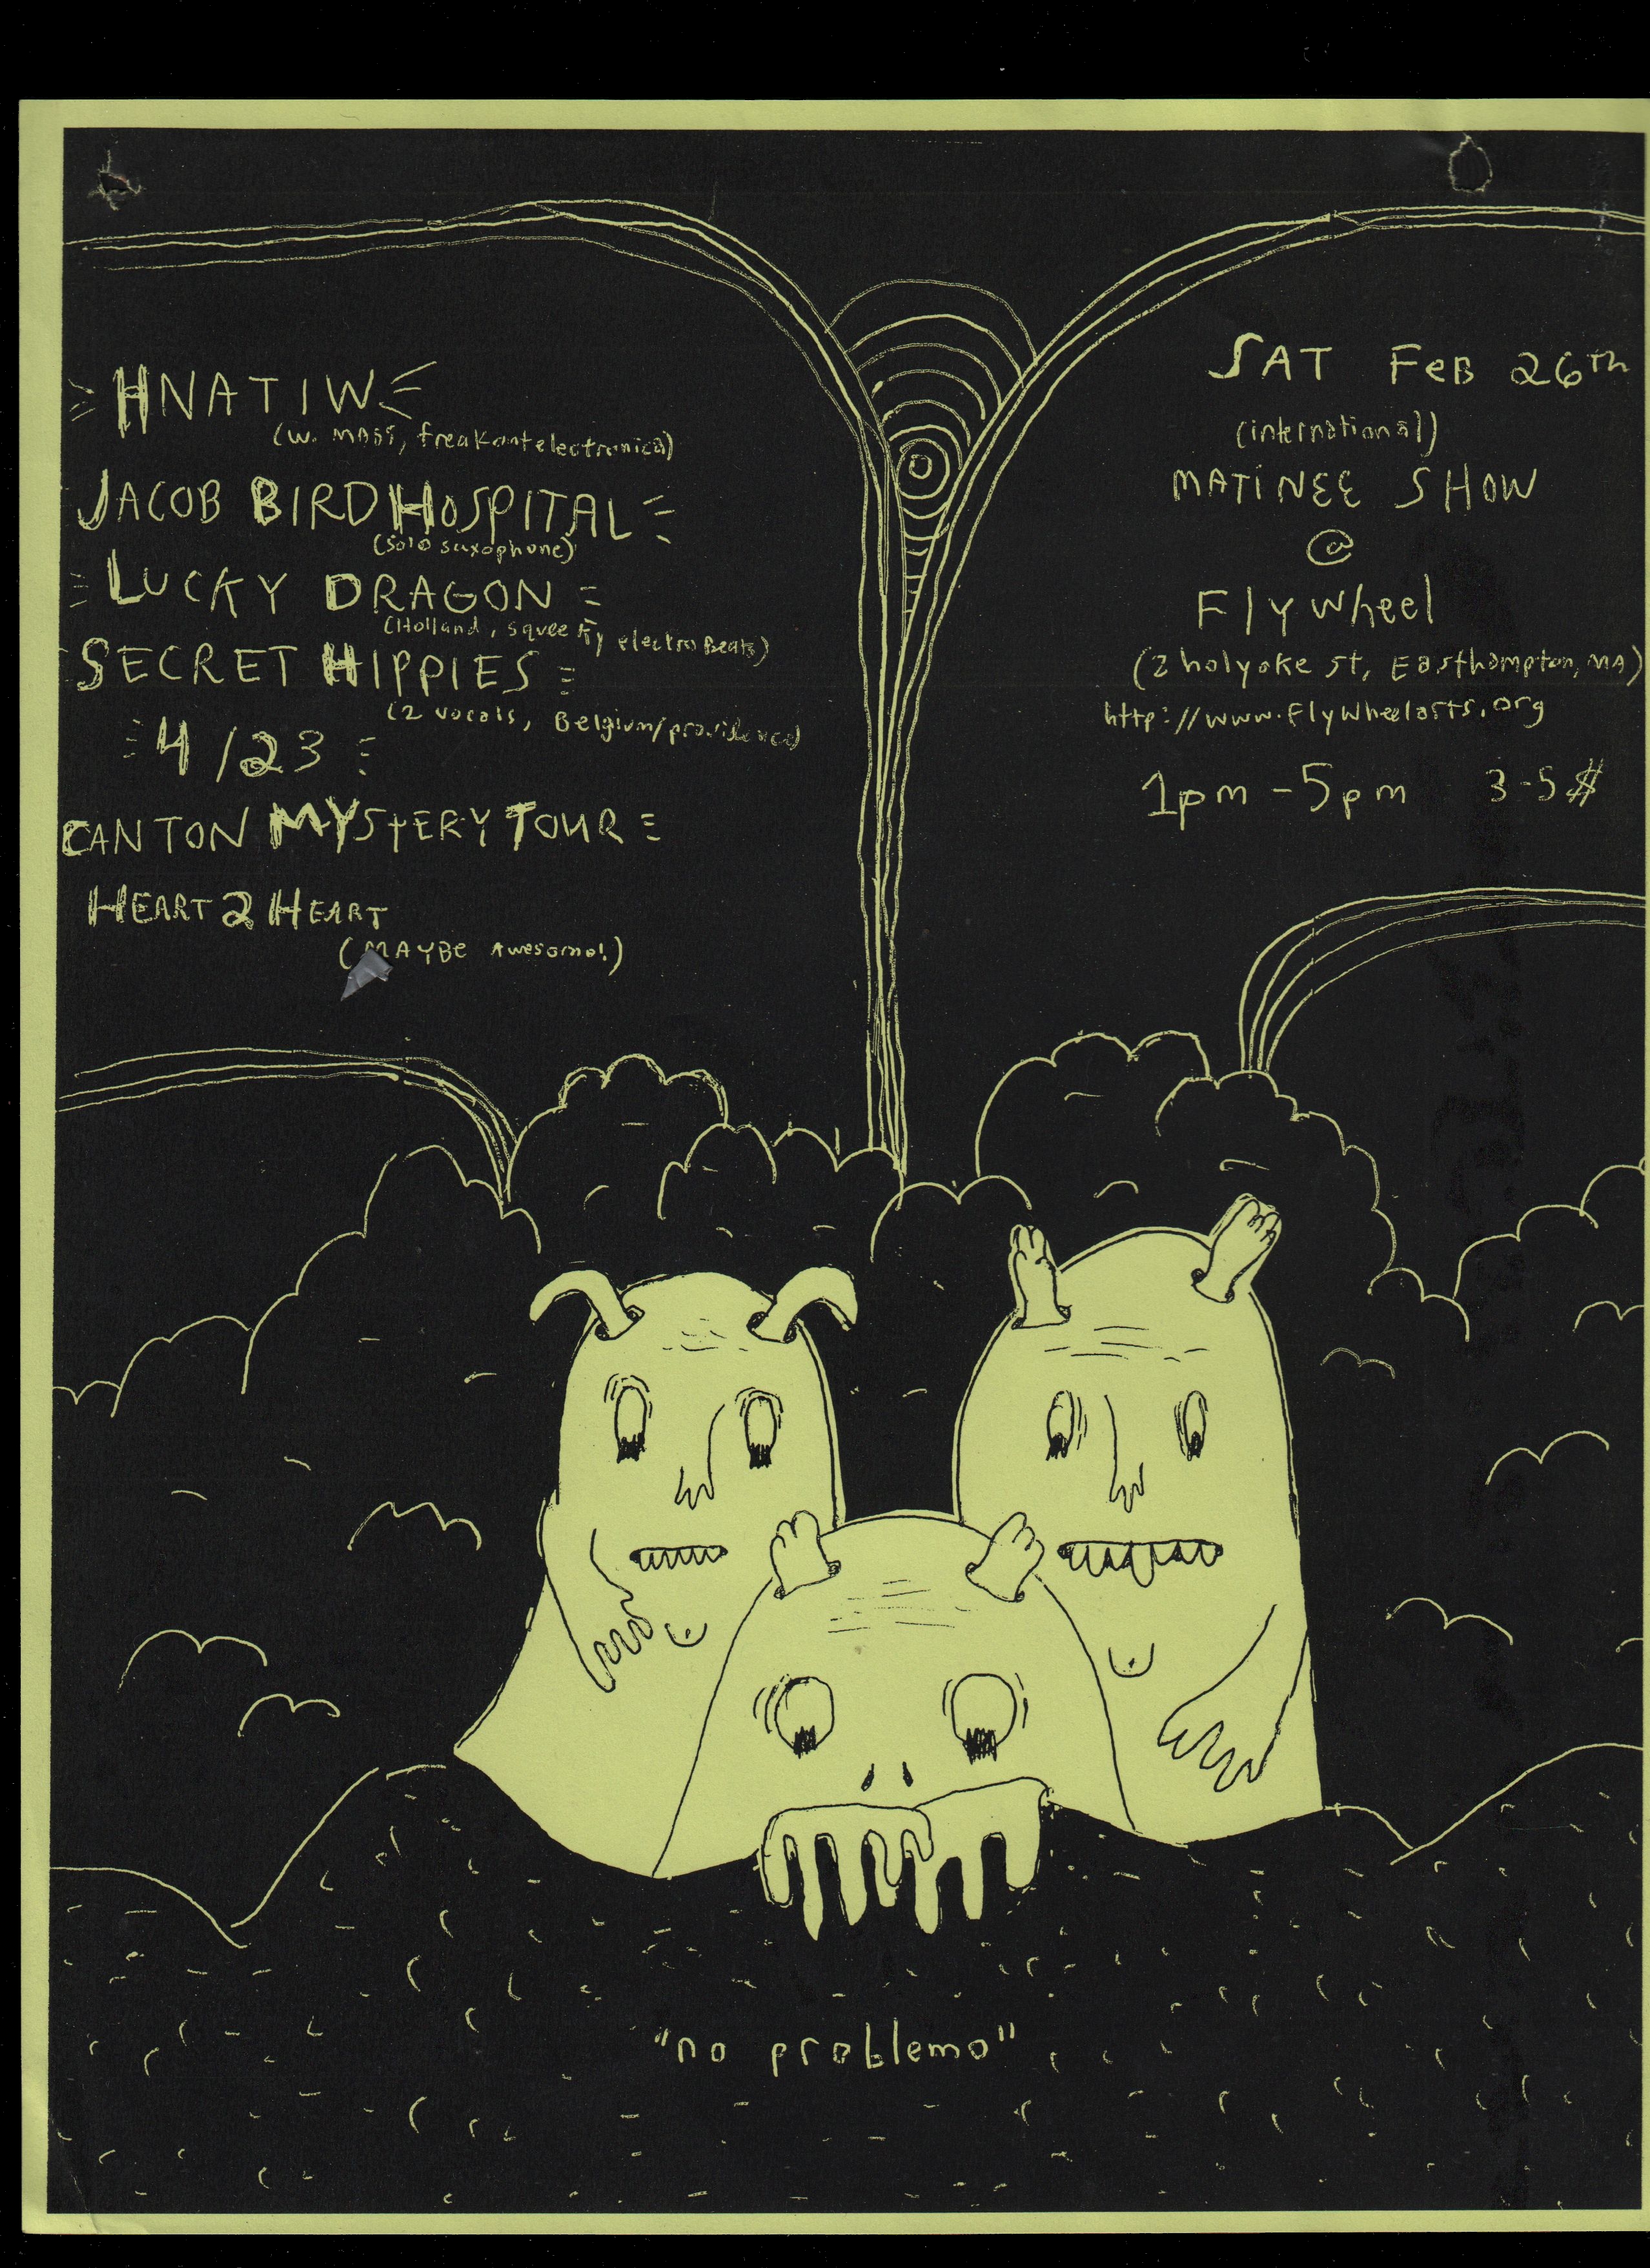 HNATIW
(W. MASS, freakoutelectronica)
JACOB BIRD HOSPITAL
(solo saxophone)
LUCKY DRAGON
(Holland, squeeky electro Beats)
SECRET HIPPIES
(2 vocals, Belgium/providence)
4/23
CANTON MYSTERY TOUR
HEART 2 HEART
(MAYBE Awesome!)
SAT FeB 26th
(international)
MATINEE SHOW
@
Flywheel
(2 holyoke st, Easthampton, MA)
http://www.Flywheelarts.org
1pm - 5pm 3-5$
"no problemo"